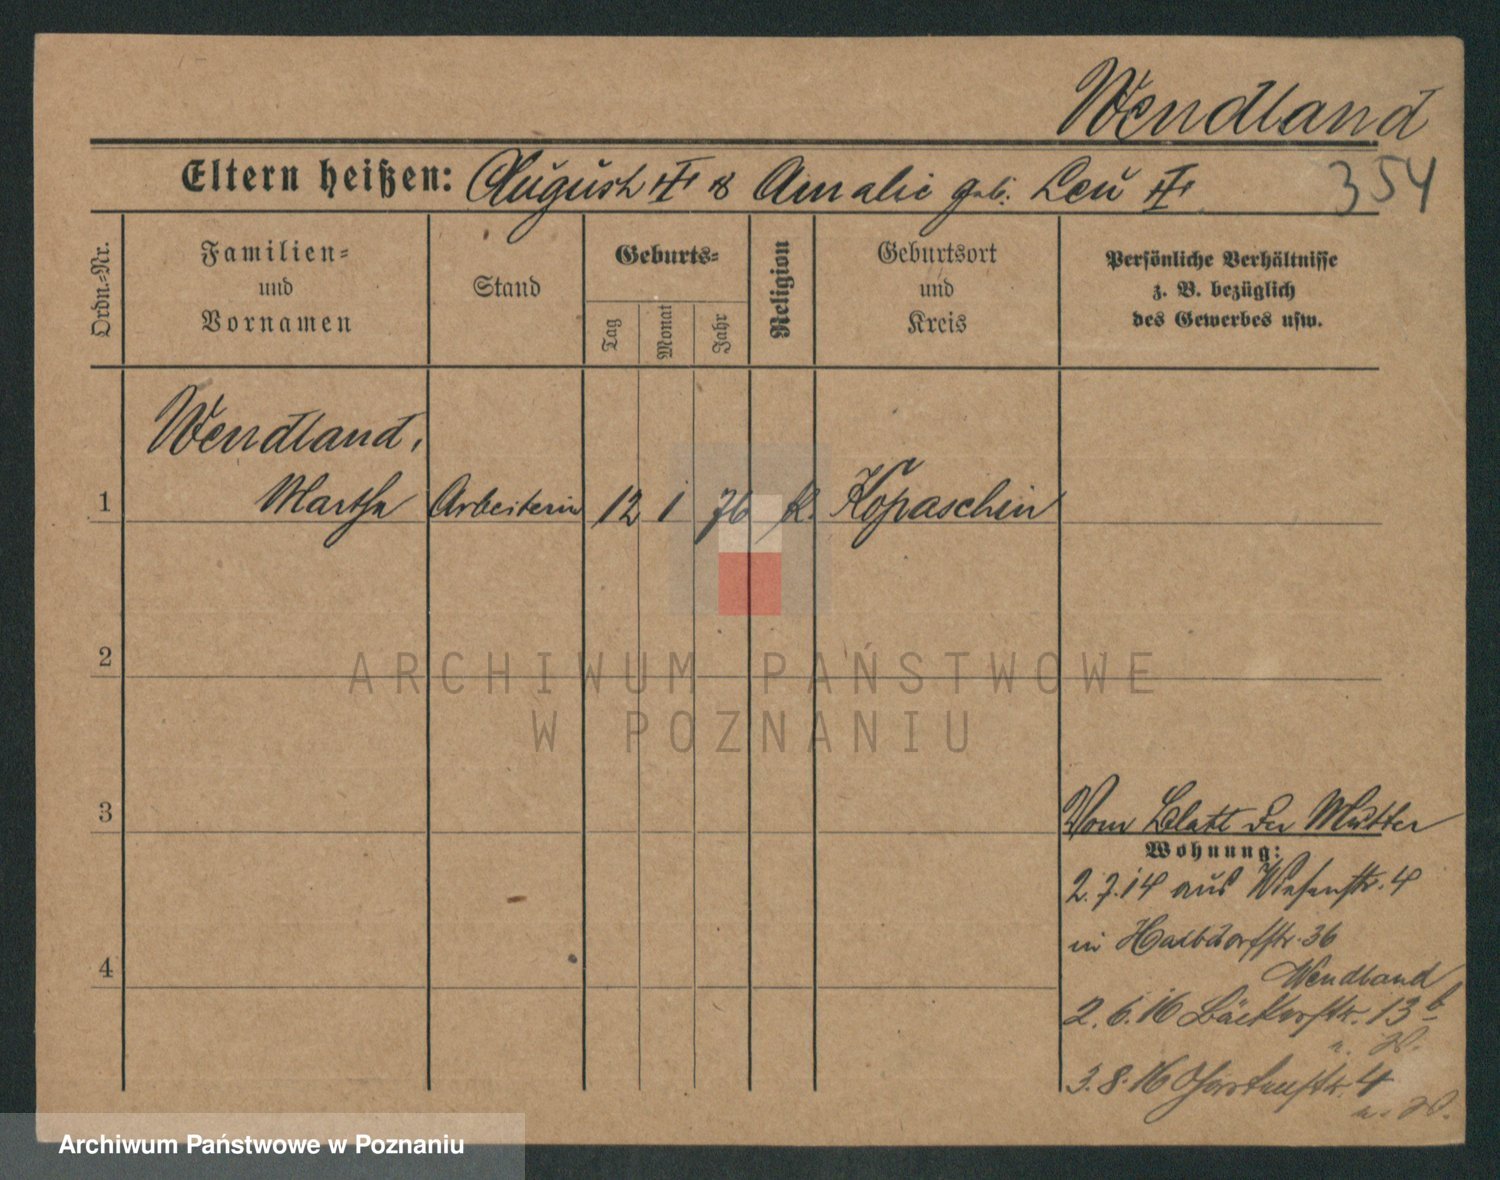 Wendland
Eltern heißen: August & Amalie geb. Leu
354
Ordn.-Nr.
Familien-
und
Vornamen
Stand
Geburts-
Tag
Monat
Jahr
Religion
Geburtsort
und
Kreis
Persönliche Verhältnisse
z. B. bezüglich
des Gewerbes usw.
Wendland,
1 Martha Arbeiterin 12 1 76 k. Kopaschin
2
3
4
Vom Blatt der Mutter
Wohnung:
2.7.14 aus Wiesenstr. 4
in Halbdorfstr. 36
Wendland
2.6.16 Bäckerstr. 13 b
3.8.16 4
ARCHIWUM PAŃSTWOWE
W POZNANIU
Archiwum Państwowe w Poznaniu